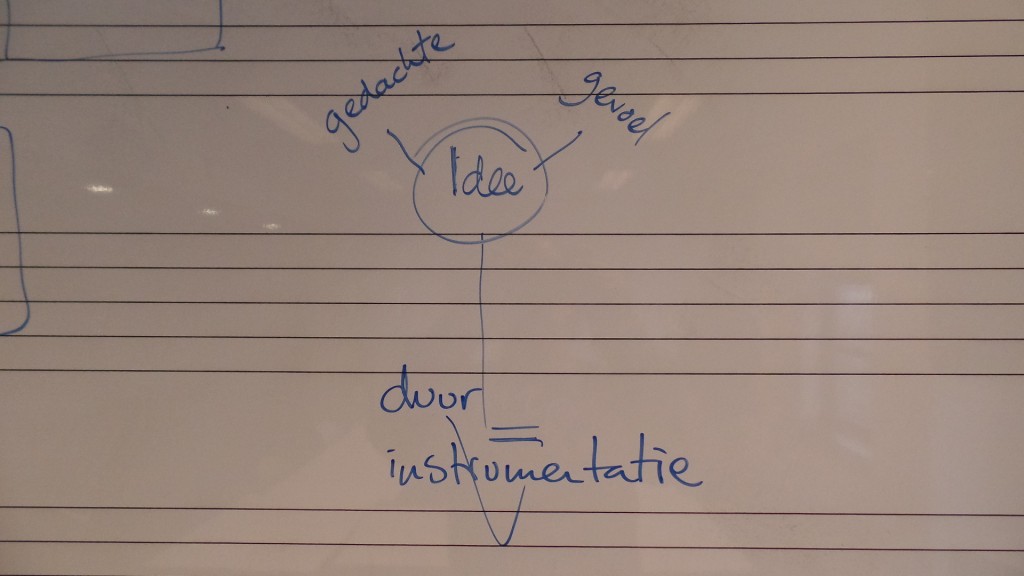 gedachte
gevoel
Idee
duur
=
instrumentatie